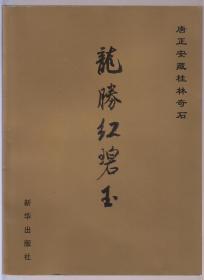 唐正安藏桂林奇石
龍勝红碧玉
新华出版社